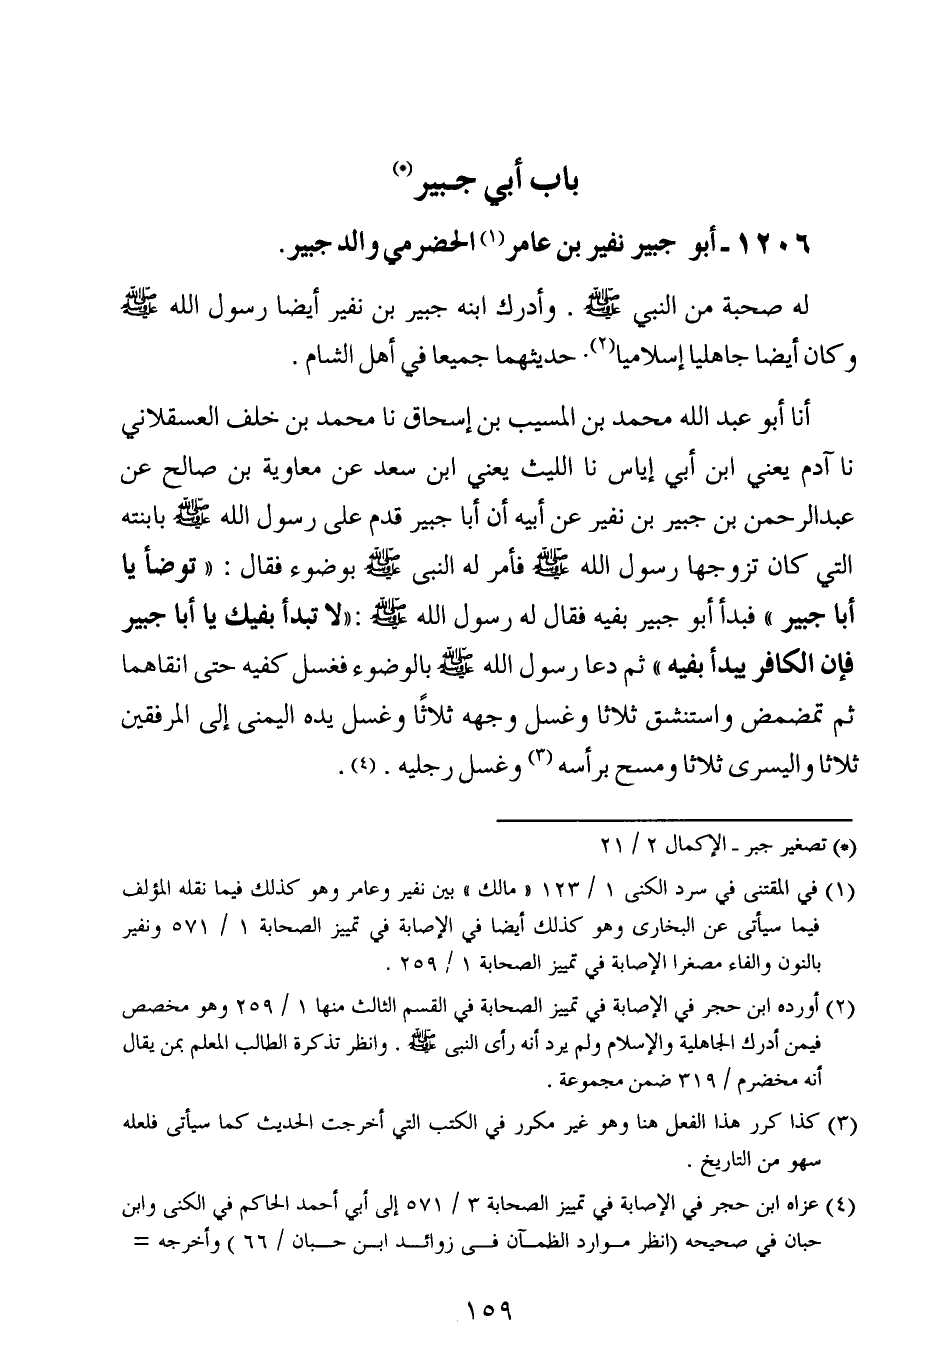 باب أبي جـبير(*)
١٢٠٦ - أبو جبير نفير بن عامر(١) الحضرمي والد جبير.
له صحبة من النبي ﷺ . وأدرك ابنه جبير بن نفير أيضا رسول الله ﷺ
وكان أيضا جاهليا إسلاميا(٢). حديثهما جميعا في أهل الشام .
أنا أبو عبد الله محمد بن المسيب بن إسحاق نا محمد بن خلف العسقلاني
نا آدم يعني ابن أبي إياس نا الليث يعني ابن سعد عن معاوية بن صالح عن
عبدالرحمن بن جبير بن نفير عن أبيه أن أبا جبير قدم على رسول الله ﷺ بابنته
التي كان تزوجها رسول الله ﷺ فأمر له النبى ﷺ بوضوء فقال : « توضأ يا
أبا جبير » فبدأ أبو جبير بفيه فقال له رسول الله ﷺ :«لا تبدأ بفيك يا أبا جبير
فإن الكافر يبدأ بفيه » ثم دعا رسول الله ﷺ بالوضوء فغسل كفيه حتى انقاهما
ثم تمضمض واستنشق ثلاثا وغسل وجهه ثلاثًا وغسل يده اليمنى إلى المرفقين
ثلاثا واليسرى ثلاثا ومسح برأسه (٣) وغسل رجليه . (٤) .
(*) تصغير جبر - الإكمال ٢ / ٢١
(١) في المقتنى في سرد الكنى ١ / ١٢٣ « مالك » بين نفير وعامر وهو كذلك فيما نقله المؤلف
فيما سيأتى عن البخارى وهو كذلك أيضا في الإصابة في تمييز الصحابة ١ / ٥٧١ ونفير
بالنون والفاء مصغرا الإصابة في تمييز الصحابة ١ / ٢٥٩ .
(٢) أورده ابن حجر في الإصابة في تمييز الصحابة في القسم الثالث منها ١ / ٢٥٩ وهو مخصص
فيمن أدرك الجاهلية والإسلام ولم يرد أنه رأى النبى ﷺ . وانظر تذكرة الطالب المعلم بمن يقال
أنه مخضرم / ٣١٩ ضمن مجموعة .
(٣) كذا كرر هذا الفعل هنا وهو غير مكرر في الكتب التي أخرجت الحديث كما سيأتى فلعله
سهو من التاريخ .
(٤) عزاه ابن حجر في الإصابة في تمييز الصحابة ٣ / ٥٧١ إلى أبي أحمد الحاكم في الكنى وابن
حبان في صحيحه (انظر مـوارد الظمـآن فـى زوائـد ابـن حـبـان / ٦٦ ) وأخرجه =
١٥٩